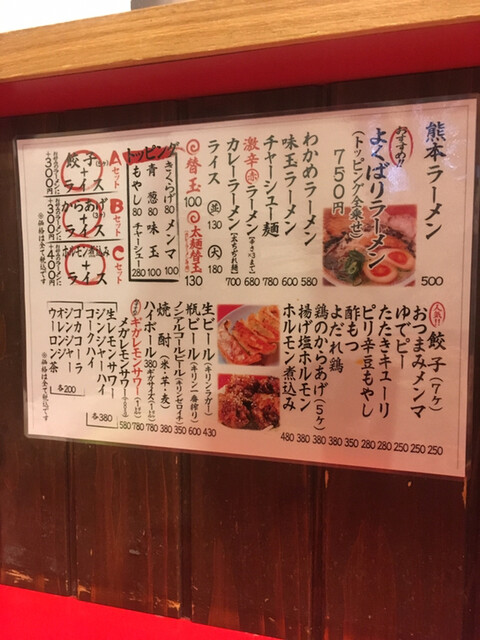 熊本ラーメン 500
おすすめ!!
よくばりラーメン
(トッピング全乗せ)
750円
わかめラーメン 600
味玉ラーメン 600
チャーシュー麺 680
激辛赤ラーメン 600
カレーラーメン 700
ライス 並 130 大 180
替玉 100
太麺替玉 130
トッピング
きくらげ 80 メンマ 100
青葱 80 味玉 100
もやし 80 チャーシュー 280
Aセット
餃子+ライス
+300円
Bセット
からあげ+ライス
+300円
Cセット
ホルモン煮込み+ライス
+400円
※価格は全て税込です
人気!!
餃子(7ケ) 250
おつまみメンマ 250
ゆでピー 250
たたきキューリ 280
ピリ辛豆もやし 280
酢もつ 350
よだれ鶏 380
鶏のからあげ(5ケ) 380
揚げ塩ホルモン 380
ホルモン煮込み 480
生ビール(キリンラガー) 430
瓶ビール(キリン一番搾り) 600
ノンアルコールビール(キリンゼロイチ) 350
焼酎(米・芋・麦) 380
ハイボール 380 ギガサイズ 780
ギガレモンサワー 780
メガレモンサワー 580
生レモンサワー
ジンジャーハイ
コークハイ
各380
コカコーラ
ジンジャー
オレンジ
ウーロン茶
各200
※価格は全て税込です